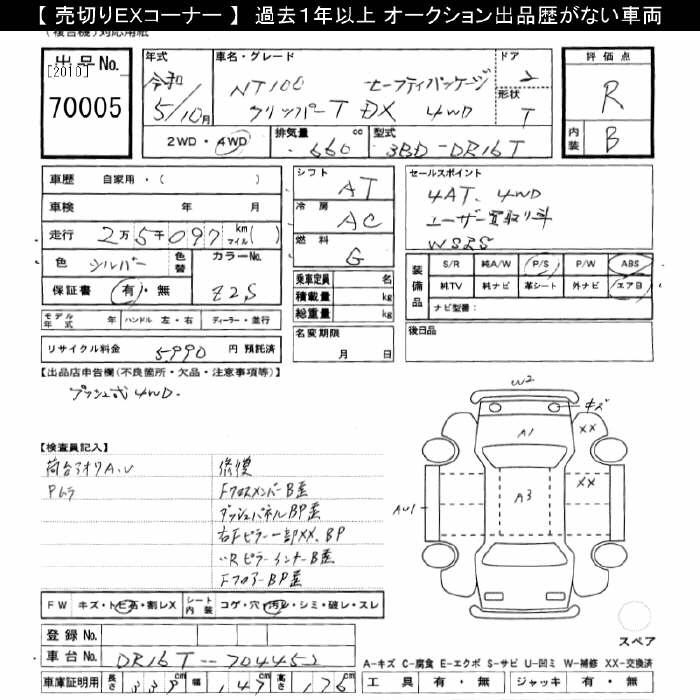 【 売切りEXコーナー 】 過去１年以上 オークション出品歴がない車両
(複合機)対応用紙
出品No.
[2010]
70005
年式
令和
5/10月
車名・グレード
NT100 セーフティパッケージ
クリッパーT DX 4WD
ドア
2
形状
T
2WD・4WD
排気量 cc
660
型式
3BD-DR16T
評価点
R
内装
B
車歴 自家用・( )
車検 年 月
走行 2万5千097 km マイル( )
色 シルバー
色替
カラーNo.
Z2S
保証書 有・無
モデル年式 年
ハンドル 左・右
ディーラー・並行
リサイクル料金 5,990 円 預託済
シフト
AT
冷房
AC
燃料
G
乗車定員 名
積載量 kg
総重量 kg
名変期限
月 日
セールスポイント
4AT. 4WD
ユーザー買取り車
WSRS
装備品
S/R 純A/W P/S P/W ABS
純TV 純ナビ 革シート 外ナビ エアB
ナビ型番:
後日品
【出品店申告欄(不良箇所・欠品・注意事項等)】
プッシュ式4WD.
【検査員記入】
荷台アオリA.U
Pムラ
修復
Fクロスメンバー B歪
ダッシュパネル BP歪
右Fピラー一部XX.BP
〃Rピラーインナー B歪
Fフロアー BP歪
W2
キズ
A1
XX
A3
XX
AU1
スペア
FW キズ・トビ石・割レX
シート内装 コゲ・穴・汚レ・シミ・破レ・スレ
登録No.
車台No. DR16T-704452
車庫証明用 長さ 339cm 幅 147cm 高さ 176cm
A-キズ C-腐食 E-エクボ S-サビ U-凹ミ W-補修 XX-交換済
工具 有・無 ジャッキ 有・無